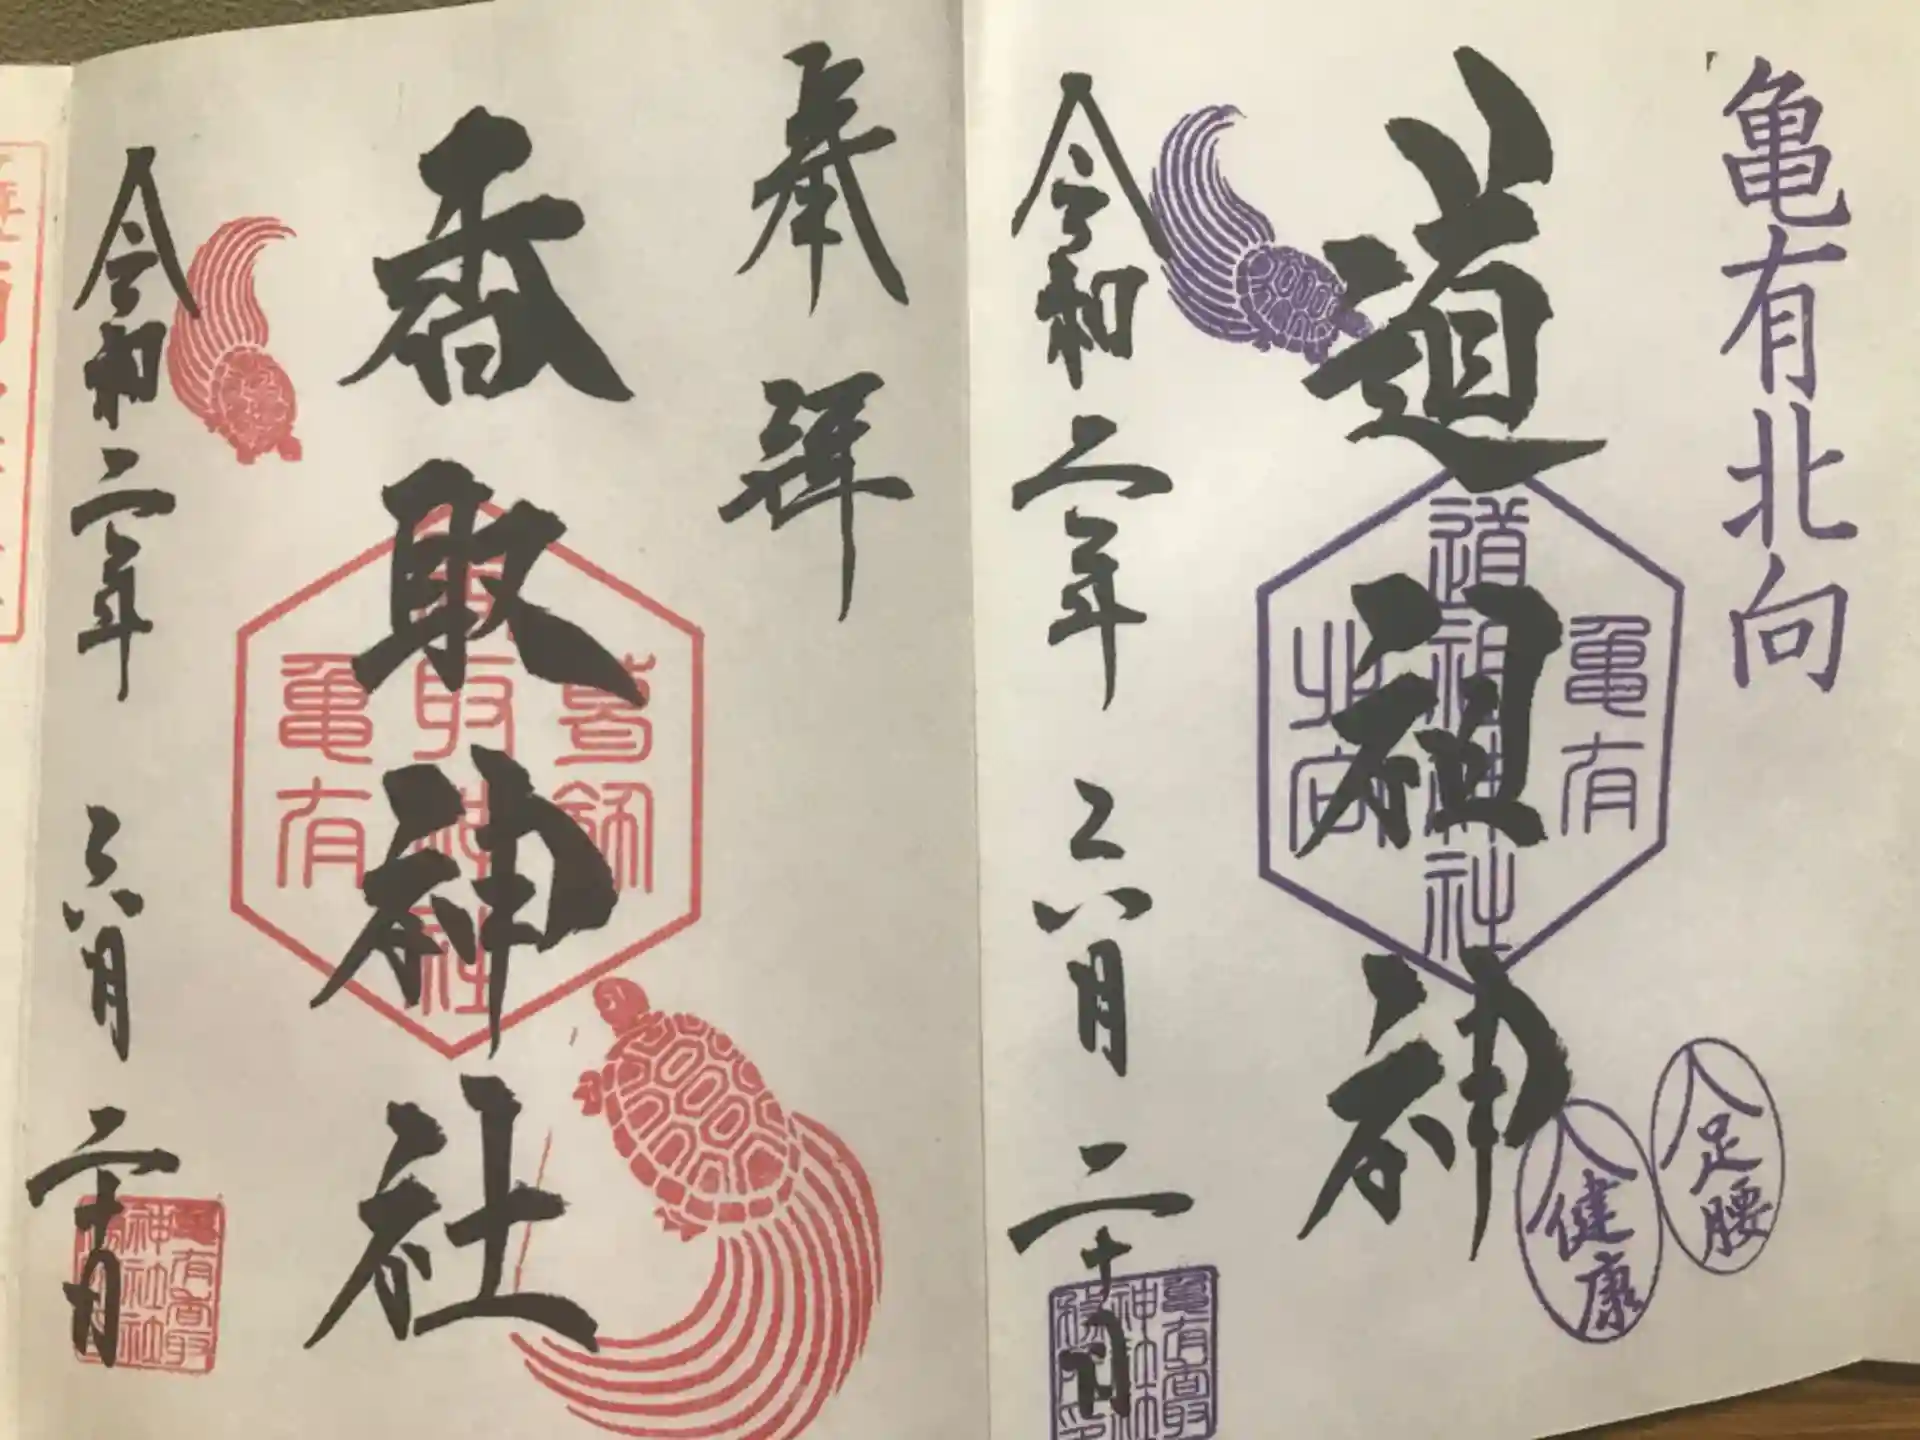 亀有北向
道祖神
亀有
道祖神社
北向
足腰
健康
令和二年六月二十日
亀有香取
神社社
奉拝
香取神社
葛飾
亀有
令和二年六月二十日
亀有香取
神社社